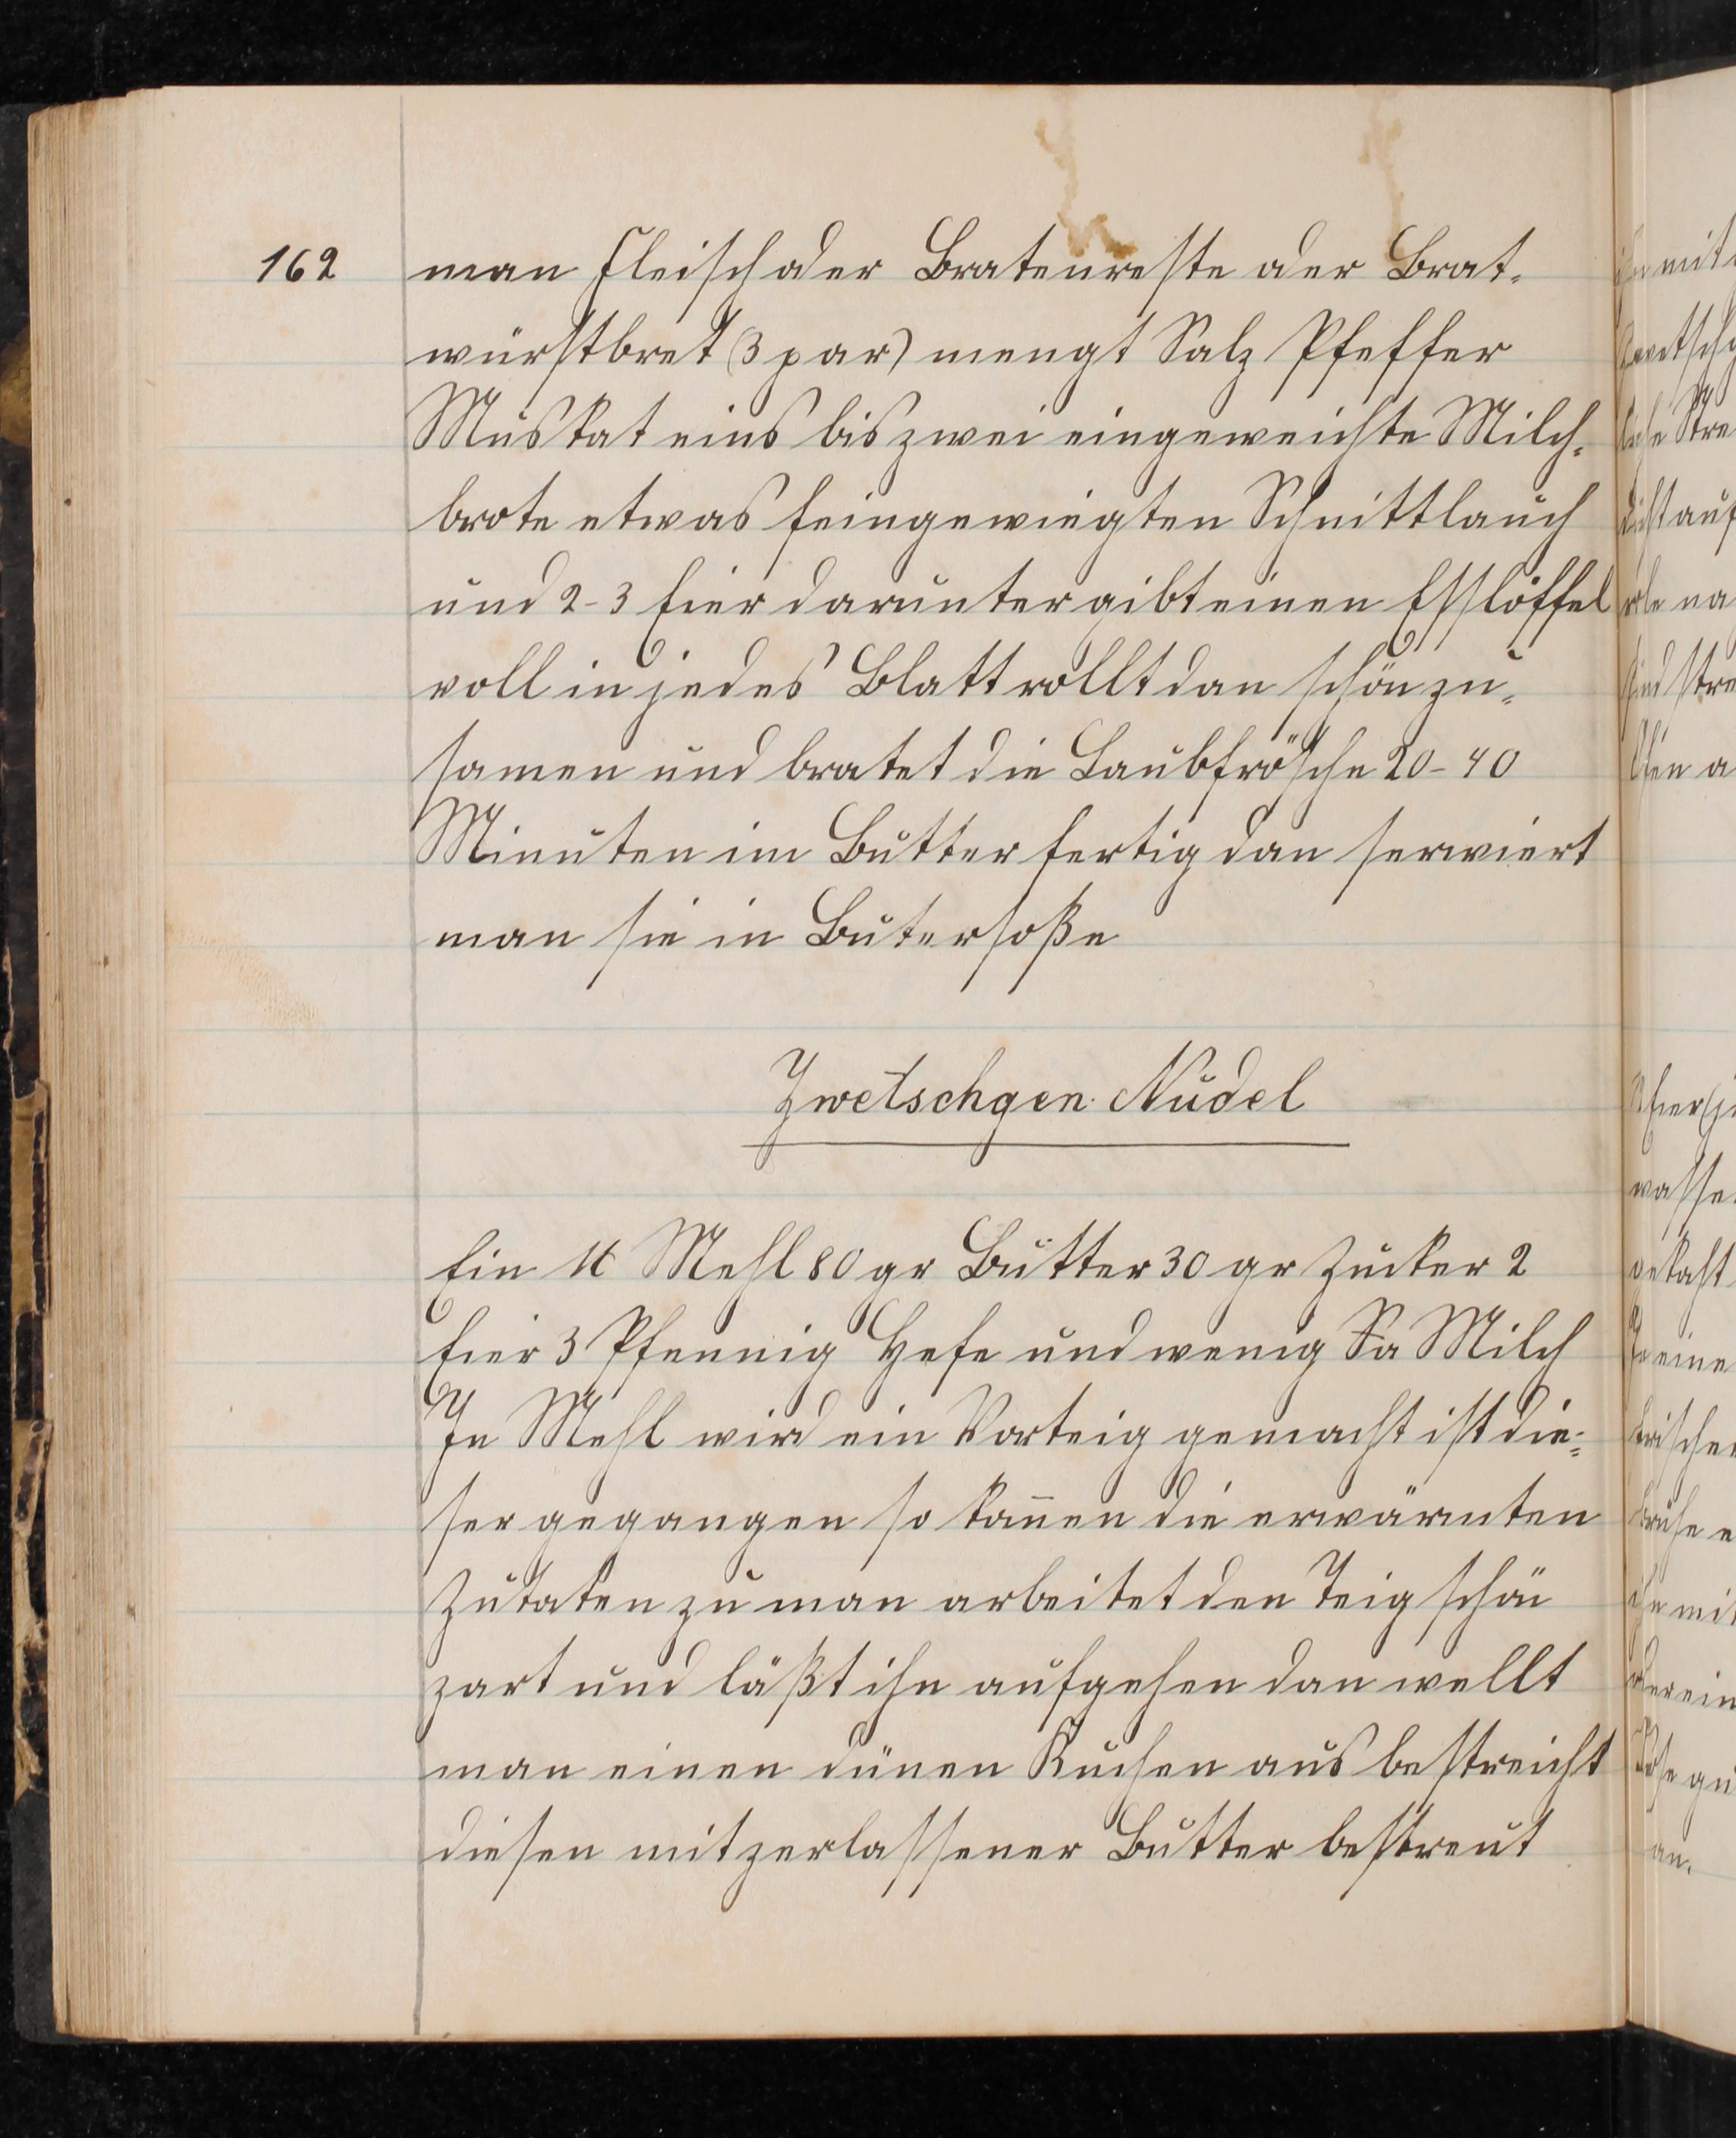 162
man Fleisch oder Bratenreste oder Brat-
würstbret (3 par) mengt Salz Pfeffer
Muskat eins bis zwei eingeweichte Milch-
brote etwas feingewiegten Schnittlauch
und 2-3 Eier darunter gibt einen Esslöffel
voll in jedes Blatt rollt dan schön zu-
samen und bratet die Laubfrösche 20-40
Minuten im Butter fertig dan serwiert
man sie in Butersoße
Zwetschgen Nudel
Ein ℔ Mehl 80 gr Butter 30 gr Zucker 2
Eier 3 Pfennig Hefe und wenig Sa Milch
In Mehl wird ein Vorteig gemacht ist die-
ser gegangen so kom̄en die erwärmten
Zutaten zu man arbeitet den Teig schön
zart und läßt ihn aufgehen dan wellt
man einen dünen Kuchen aus bestreicht
diesen mit zerlassener Butter bestreut